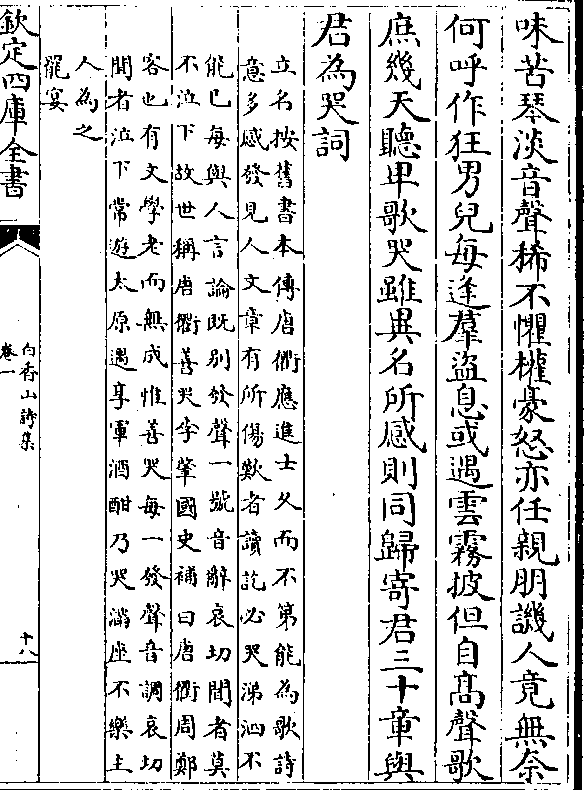 味苦琴淡音聲稀不懼權豪怒亦任親朋譏人竟無柰
何呼作狂男兒每逢羣盜息或遇雲霧披但自髙聲歌
庶幾天聽卑歌哭雖異名所感則同歸寄君三十章與
君為哭詞
立名按舊書本傳唐衢應進士久而不第能為歌詩
意多感發見人文章有所傷歎者讀訖必哭涕泗不
能已每與人言論既別發聲一號音辭哀切聞者莫
不泣下故世稱唐衢善哭李肇國史補曰唐衢周鄭
客也有文學老而無成惟善哭每一發聲音調哀切
聞者泣下常遊太原遇享軍酒酣乃哭滿座不樂主
人為之
罷宴
欽定四庫全書
白香山詩集
卷一
十八